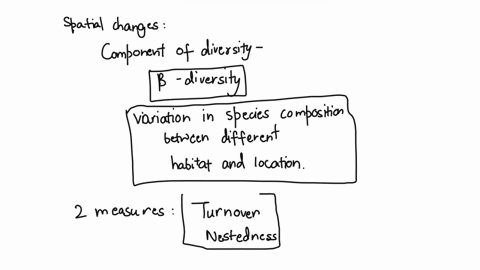 Spatial changes:
Component of diversity -
β - diversity
Variation in species composition
between different
habitat and location.
2 measures: Turnover
Nestedness